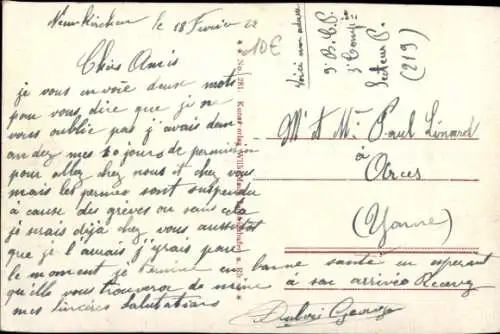 Neunkirchen le 18 Fevrier 22
Chers Amis
je vous envoie deux mots
pour vous dire que je ne
vous oublie pas j'avais dem
andez mes 10 jours de permission
pour allez chez nous et chez vous
mais les permes sont suspendu
à cause des grèves ou sans cela
je serais déjà chez vous aussitot
que je l'aurais j'irais pour
le moment je termine en bonne santé en esperant
qu'elle vous trouvera de même à son arrivée Recevez
mes sincères Salutations
10€
Voici mon adresse
9e B.C.P.
3e Compie
Secteur P.
(219)
No. 281.
Mr et Me Paul Linard
à
Arces
(Yonne)